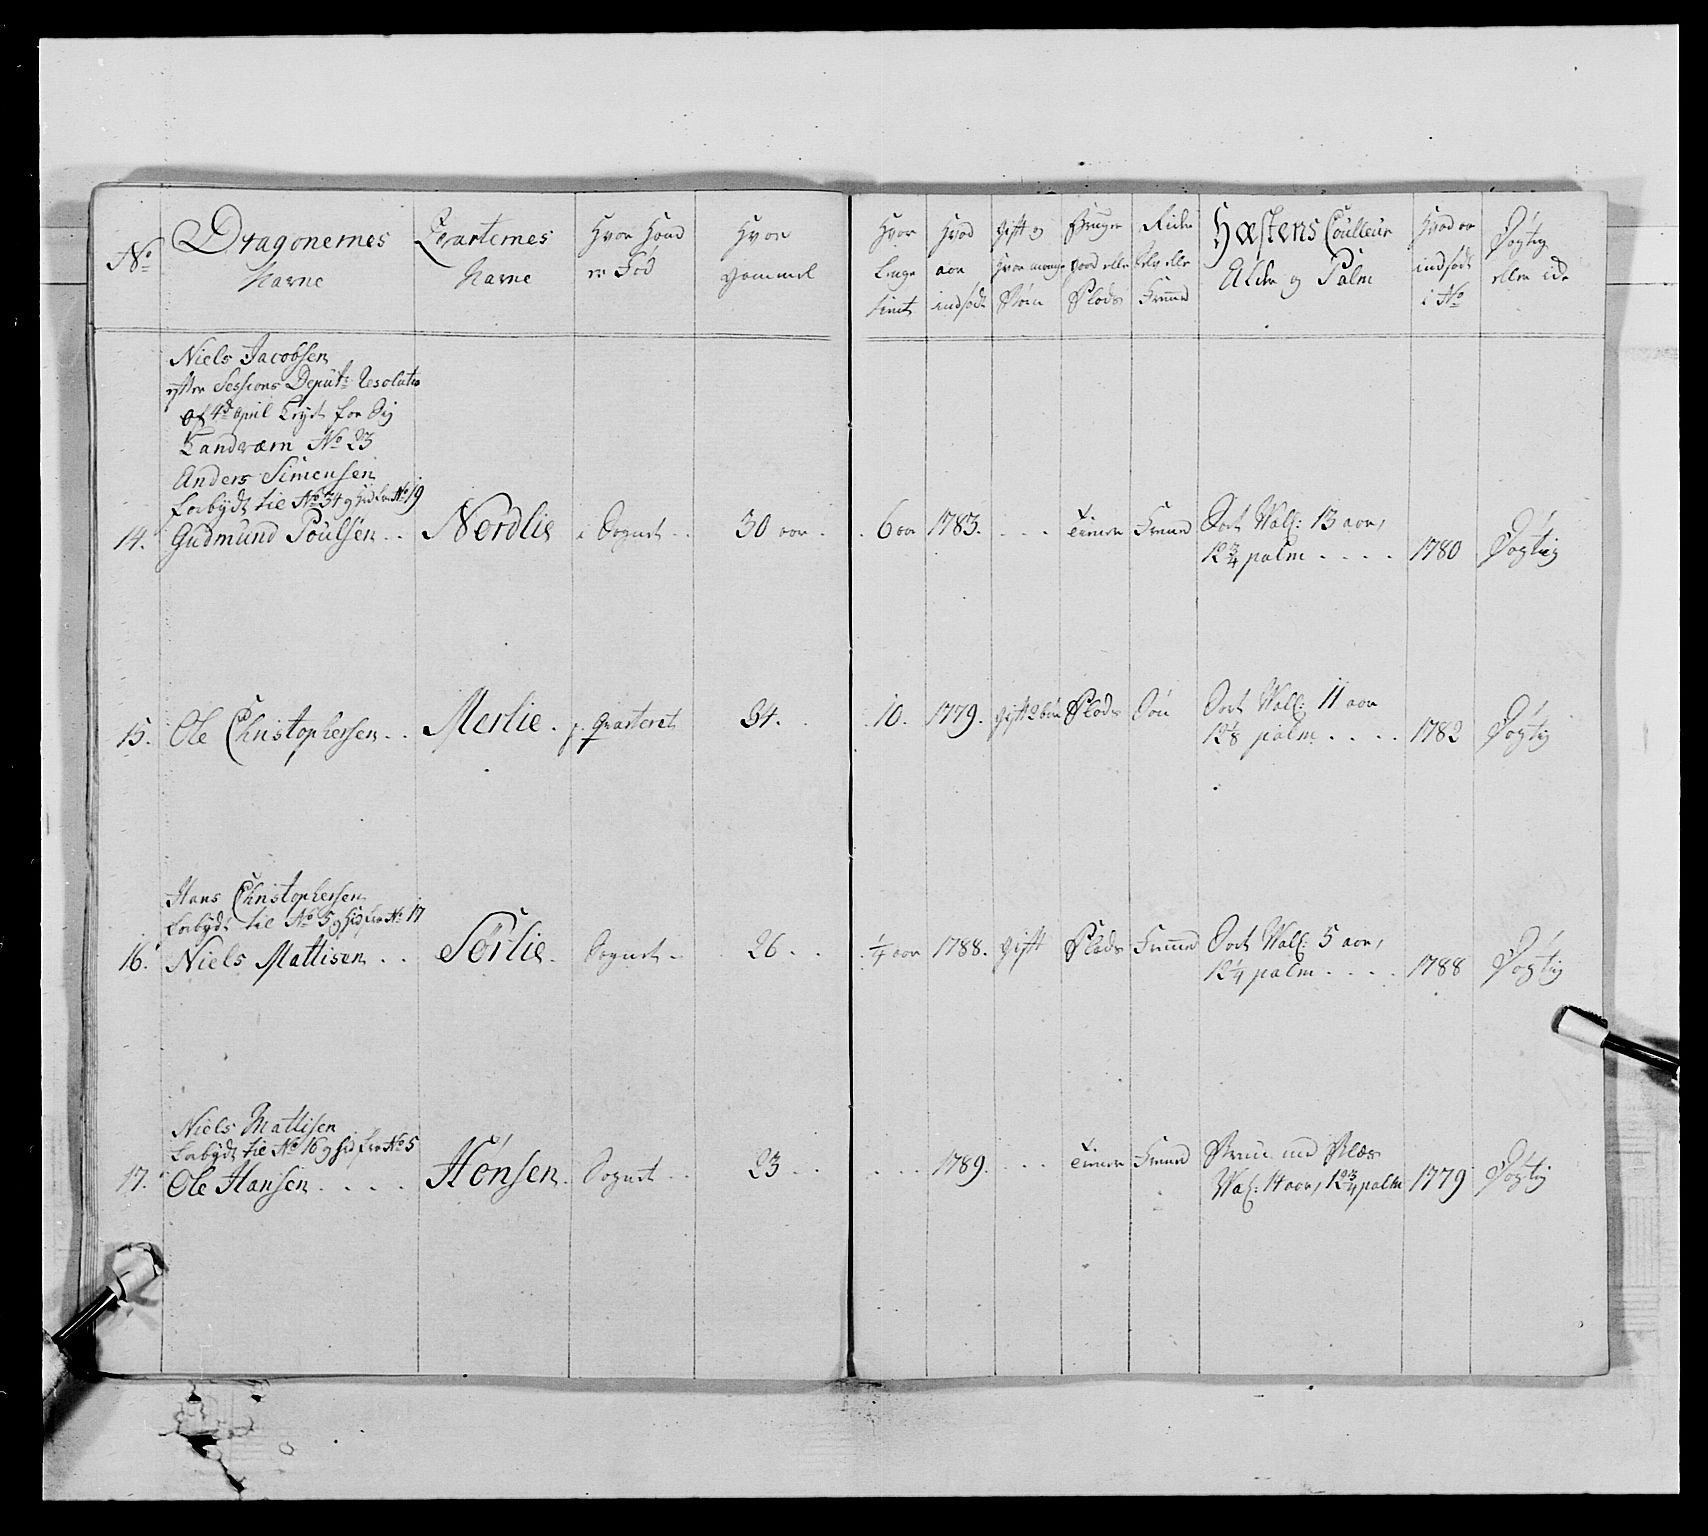 No
Dragonernes
Navne
Qvarternes
Navne
Hvor Hand
er Fød
Hvor
gammel
Hvor
Lenge
tient
Hvad
aar
indsadt
gift og
Hvor mange
Børn
Bruger
gaard eller
Plads
Rider
selv eller
Fremd
Hæstens Coulleur
Alder og Palm
Hvad aar
indsadt
i No
Dygtig
eller ide
Niels Jacobsen
efter Sessions Deput: Resolution
af 4de April for Sig
Landværn No 23
Anders Simensen
forbydt til No 34 og hid fra No 19
14. Gudmund Poulsen . . Nordlie i Sognet . . 30 aar . . 6 aar 1783. . . . Tiener Fremd Sort Wall: 13 aar,
12 3/4 palm . . . . 1780 Dygtig
15. Ole Christophersen . . Merlie . p. Qvarteret 34. . 10. 1779. gift 2 børn Plads Søn Sort Wall: 11 aar
12 1/8 palm . . . . 1782 Dygtig
Hans Christophersen
forbydt til No 5 og hid fra No 17
16. Niels Mattisen . . Sørlie . Sognet . . 26 . . 1/4 aar 1788. gift Plads Fremd Sort Wall: 5 aar,
12 1/4 palm . . . . 1788 Dygtig
Niels Mattisen
forbydt til No 16 og hid fra No 5
17. Ole Hansen . . . . Hønsen . Sognet . . 23 . . . . . 1789. . . . Tiener Fremd Bruun med Blæs
Wal: 14 aar, 12 3/4 palm 1779 Dygtig